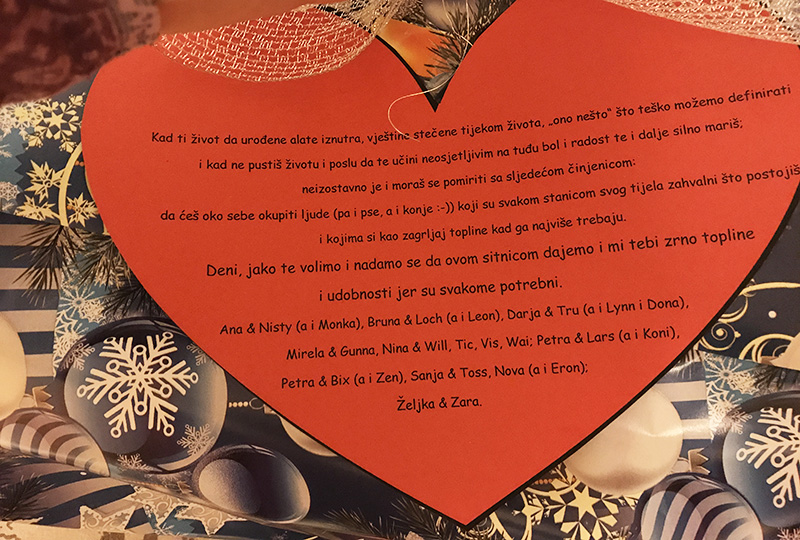 Kad ti život da urođene alate iznutra, vještine stečene tijekom života, „ono nešto“ što teško možemo definirati
i kad ne pustiš životu i poslu da te učini neosjetljivim na tuđu bol i radost te i dalje silno mariš;
neizostavno je i moraš se pomiriti sa sljedećom činjenicom:
da ćeš oko sebe okupiti ljude (pa i pse, a i konje :-)) koji su svakom stanicom svog tijela zahvalni što postojiš
i kojima si kao zagrljaj topline kad ga najviše trebaju.
Deni, jako te volimo i nadamo se da ovom sitnicom dajemo i mi tebi zrno topline
i udobnosti jer su svakome potrebni.
Ana & Nisty (a i Monka), Bruna & Loch (a i Leon), Darja & Tru (a i Lynn i Dona),
Mirela & Gunna, Nina & Will, Tic, Vis, Wai; Petra & Lars (a i Koni),
Petra & Bix (a i Zen), Sanja & Toss, Nova (a i Eron);
Željka & Zara.